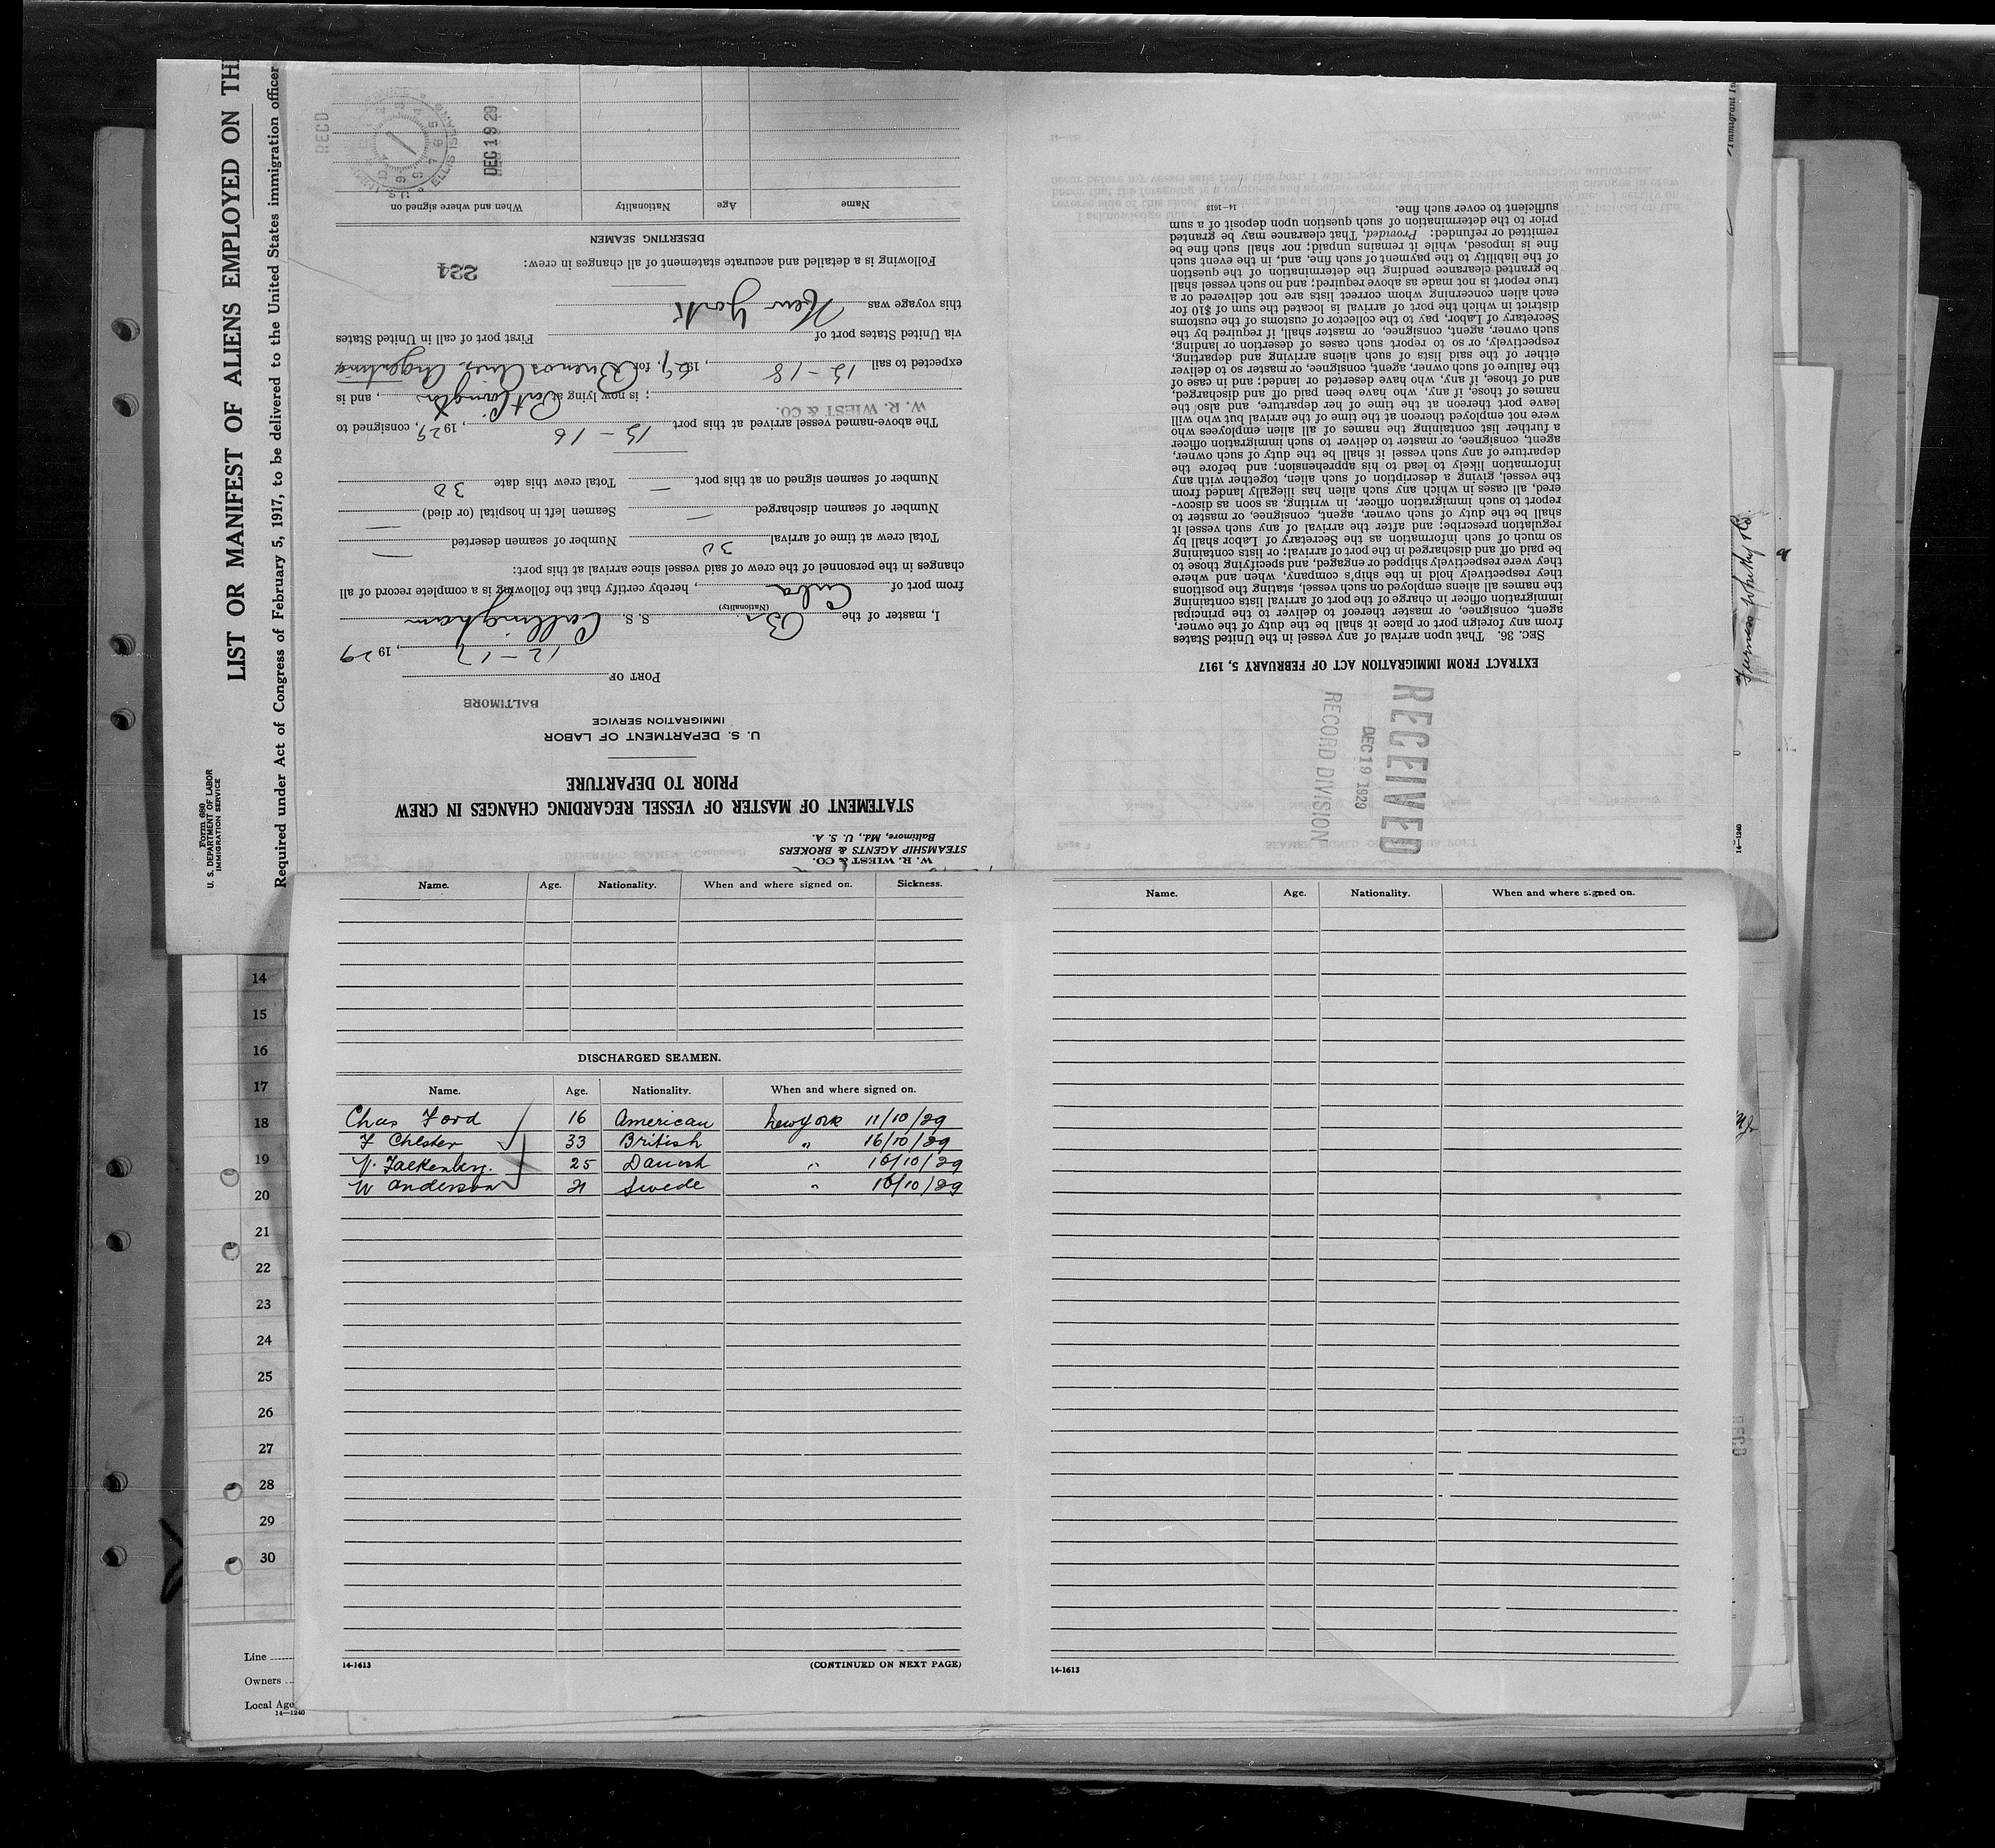 LIST OR MANIFEST OF ALIENS EMPLOYED ON TH
Required under Act of Congress of February 5, 1917, to be delivered to the United States immigration officer
Form 680
U. S. DEPARTMENT OF LABOR
IMMIGRATION SERVICE
W. R. WIEST & CO.
STEAMSHIP AGENTS & BROKERS
Baltimore, Md., U. S. A.
STATEMENT OF MASTER OF VESSEL REGARDING CHANGES IN CREW
PRIOR TO DEPARTURE
U. S. DEPARTMENT OF LABOR
IMMIGRATION SERVICE
BALTIMORE
PORT OF
12-17, 1929
I, master of the Br. S. S. Callingham
(Nationality)
from port of Cuba, hereby certify that the following is a complete record of all
changes in the personnel of the crew of said vessel since arrival at this port:
Total crew at time of arrival 30 Number of seamen deserted —
Number of seamen discharged — Seamen left in hospital (or died) —
Number of seamen signed on at this port — Total crew this date 30
The above-named vessel arrived at this port 12-16, 1929, consigned to
W. R. WIEST & CO.
; is now lying at, and is
expected to sail 12-18, 1929, for Buenos Aires, Argentina
via United States port of First port of call in United States
this voyage was New York
Following is a detailed and accurate statement of all changes in crew:
224
DESERTING SEAMEN
Name Age Nationality When and where signed on
REC'D
DEC 19 29
ELLIS ISLAND
RECEIVED
DEC 19 1929
RECORD DIVISION
EXTRACT FROM IMMIGRATION ACT OF FEBRUARY 5, 1917
SEC. 36. That upon arrival of any vessel in the United States
from any foreign port or place it shall be the duty of the owner,
agent, consignee, or master thereof to deliver to the principal
immigration officer in charge of the port of arrival lists containing
the names of all aliens employed on such vessel, stating the positions
they respectively hold in the ship's company, when and where
they were respectively shipped or engaged, and specifying those to
be paid off and discharged in the port of arrival; or lists containing
so much of such information as the Secretary of Labor shall by
regulation prescribe; and after the arrival of any such vessel it
shall be the duty of such owner, agent, consignee, or master to
report to such immigration officer, in writing, as soon as discov-
ered, all cases in which any such alien has illegally landed from
the vessel, giving a description of such alien, together with any
information likely to lead to his apprehension; and before the
departure of any such vessel it shall be the duty of such owner,
agent, consignee, or master to deliver to such immigration officer
a further list containing the names of all alien employees who
were not employed thereon at the time of the arrival but who will
leave port thereon at the time of her departure, and also the
names of those, if any, who have been paid off and discharged,
and of those, if any, who have deserted or landed; and in case of
the failure of such owner, agent, consignee, or master so to deliver
either of the said lists of such aliens arriving and departing,
respectively, or so to report such cases of desertion or landing,
such owner, agent, consignee, or master shall, if required by the
Secretary of Labor, pay to the collector of customs of the customs
district in which the port of arrival is located the sum of $10 for
each alien concerning whom correct lists are not delivered or a
true report is not made as above required; and no such vessel shall
be granted clearance pending the determination of the question
of the liability to the payment of such fine, and, in the event such
fine is imposed, while it remains unpaid; nor shall such fine be
remitted or refunded: Provided, That clearance may be granted
prior to the determination of such question upon deposit of a sum
sufficient to cover such fine.
14-1613
14-1240
Name. Age. Nationality. When and where signed on. Sickness.
DISCHARGED SEAMEN.
Name. Age. Nationality. When and where signed on.
Chas Ford 16 American New York 11/10/29
F Chester 33 British " 16/10/29
V. Falkenberg. 25 Danish " 16/10/29
W Anderson 21 Swede " 16/10/29
14-1613 (CONTINUED ON NEXT PAGE)
Name. Age. Nationality. When and where signed on.
14-1613
14
15
16
17
18
19
20
21
22
23
24
25
26
27
28
29
30
Line
Owners
Local Age
14-1240
Furness Withy & Co.
REC'D